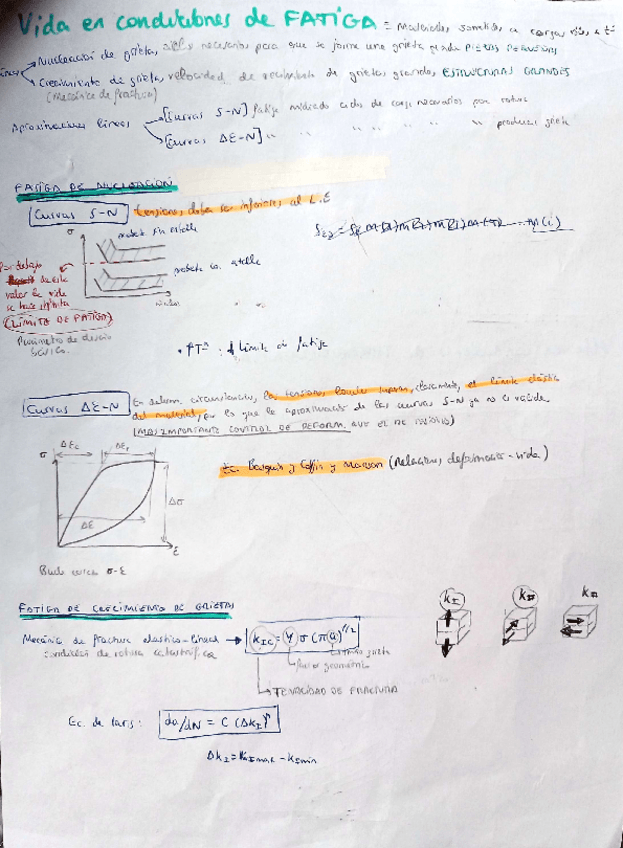 Vida en condiciones de FATIGA = Materiales sometidos a cargas
Nucleación de grieta, ciclos necesarios para que se forme una grieta PIEZAS PEQUEÑAS
Crecimiento de grieta, velocidad de crecimiento de grietas grandes, ESTRUCTURAS GRANDES
(Mecánica de fractura)
Aproximaciones
[Curvas S-N] fatiga ciclos de carga necesarios para rotura
[Curvas ΔE-N] " " " " " " producir grieta
FATIGA DE NUCLEACIÓN
Curvas S-N tensiones, deben ser inferiores al L.E
σ
probeta sin entalla
probeta con entalla
Por debajo
de este
valor la vida
se hace infinita
(LÍMITE DE FATIGA)
Parámetro de diseño
básico.
• ↑Tª : ↓ límite de fatiga
Curvas ΔE-N En determ. circunstancias, las tensiones locales superan, claramente, el límite elástico
del material, por lo que la aproximación de las curvas S-N ya no es válida
(MAS IMPORTANTE CONTROL DE DEFORM. QUE EL DE TENSIÓN)
σ
ΔE
Δσ
ΔE
E
Bucle σ-E
Ec. Basquin y Coffin y Manson (Relaciones deformación-vida)
FATIGA DE CRECIMIENTO DE GRIETAS
Mecánica de fractura elástico-lineal → K_IC = Y σ (π a)^1/2
condición de rotura catastrófica
tamaño grieta
factor geométrico
TENACIDAD DE FRACTURA
K_I K_II K_III
Ec. de Paris: da/dN = C (ΔK_I)^n
ΔK_I = K_Imax - K_Imin